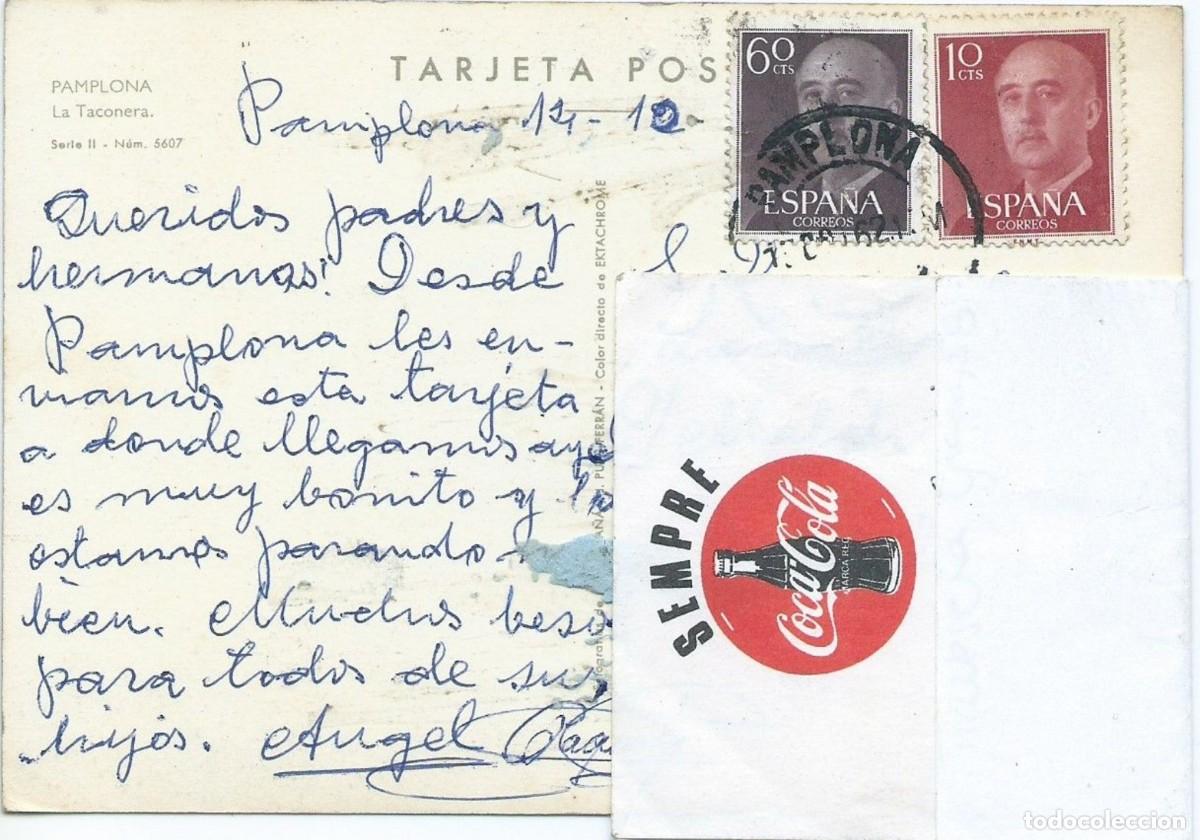 PAMPLONA
La Taconera.
Serie II - Núm. 5607
TARJETA POS
60 CTS
ESPAÑA
CORREOS
10 CTS
ESPAÑA
CORREOS
PAMPLONA
Pamplona 14-10
Queridos padres y
hermanos: Desde
Pamplona les en-
viamos esta tarjeta
a donde llegamos aye
es muy bonito y lo
estamos pasando
bien. Muchos beso
para todos de sus
hijos. Angel
FERRÁN - Color directo de EKTACHROME
SEMPRE
Coca-Cola
MARCA REG
todocoleccion